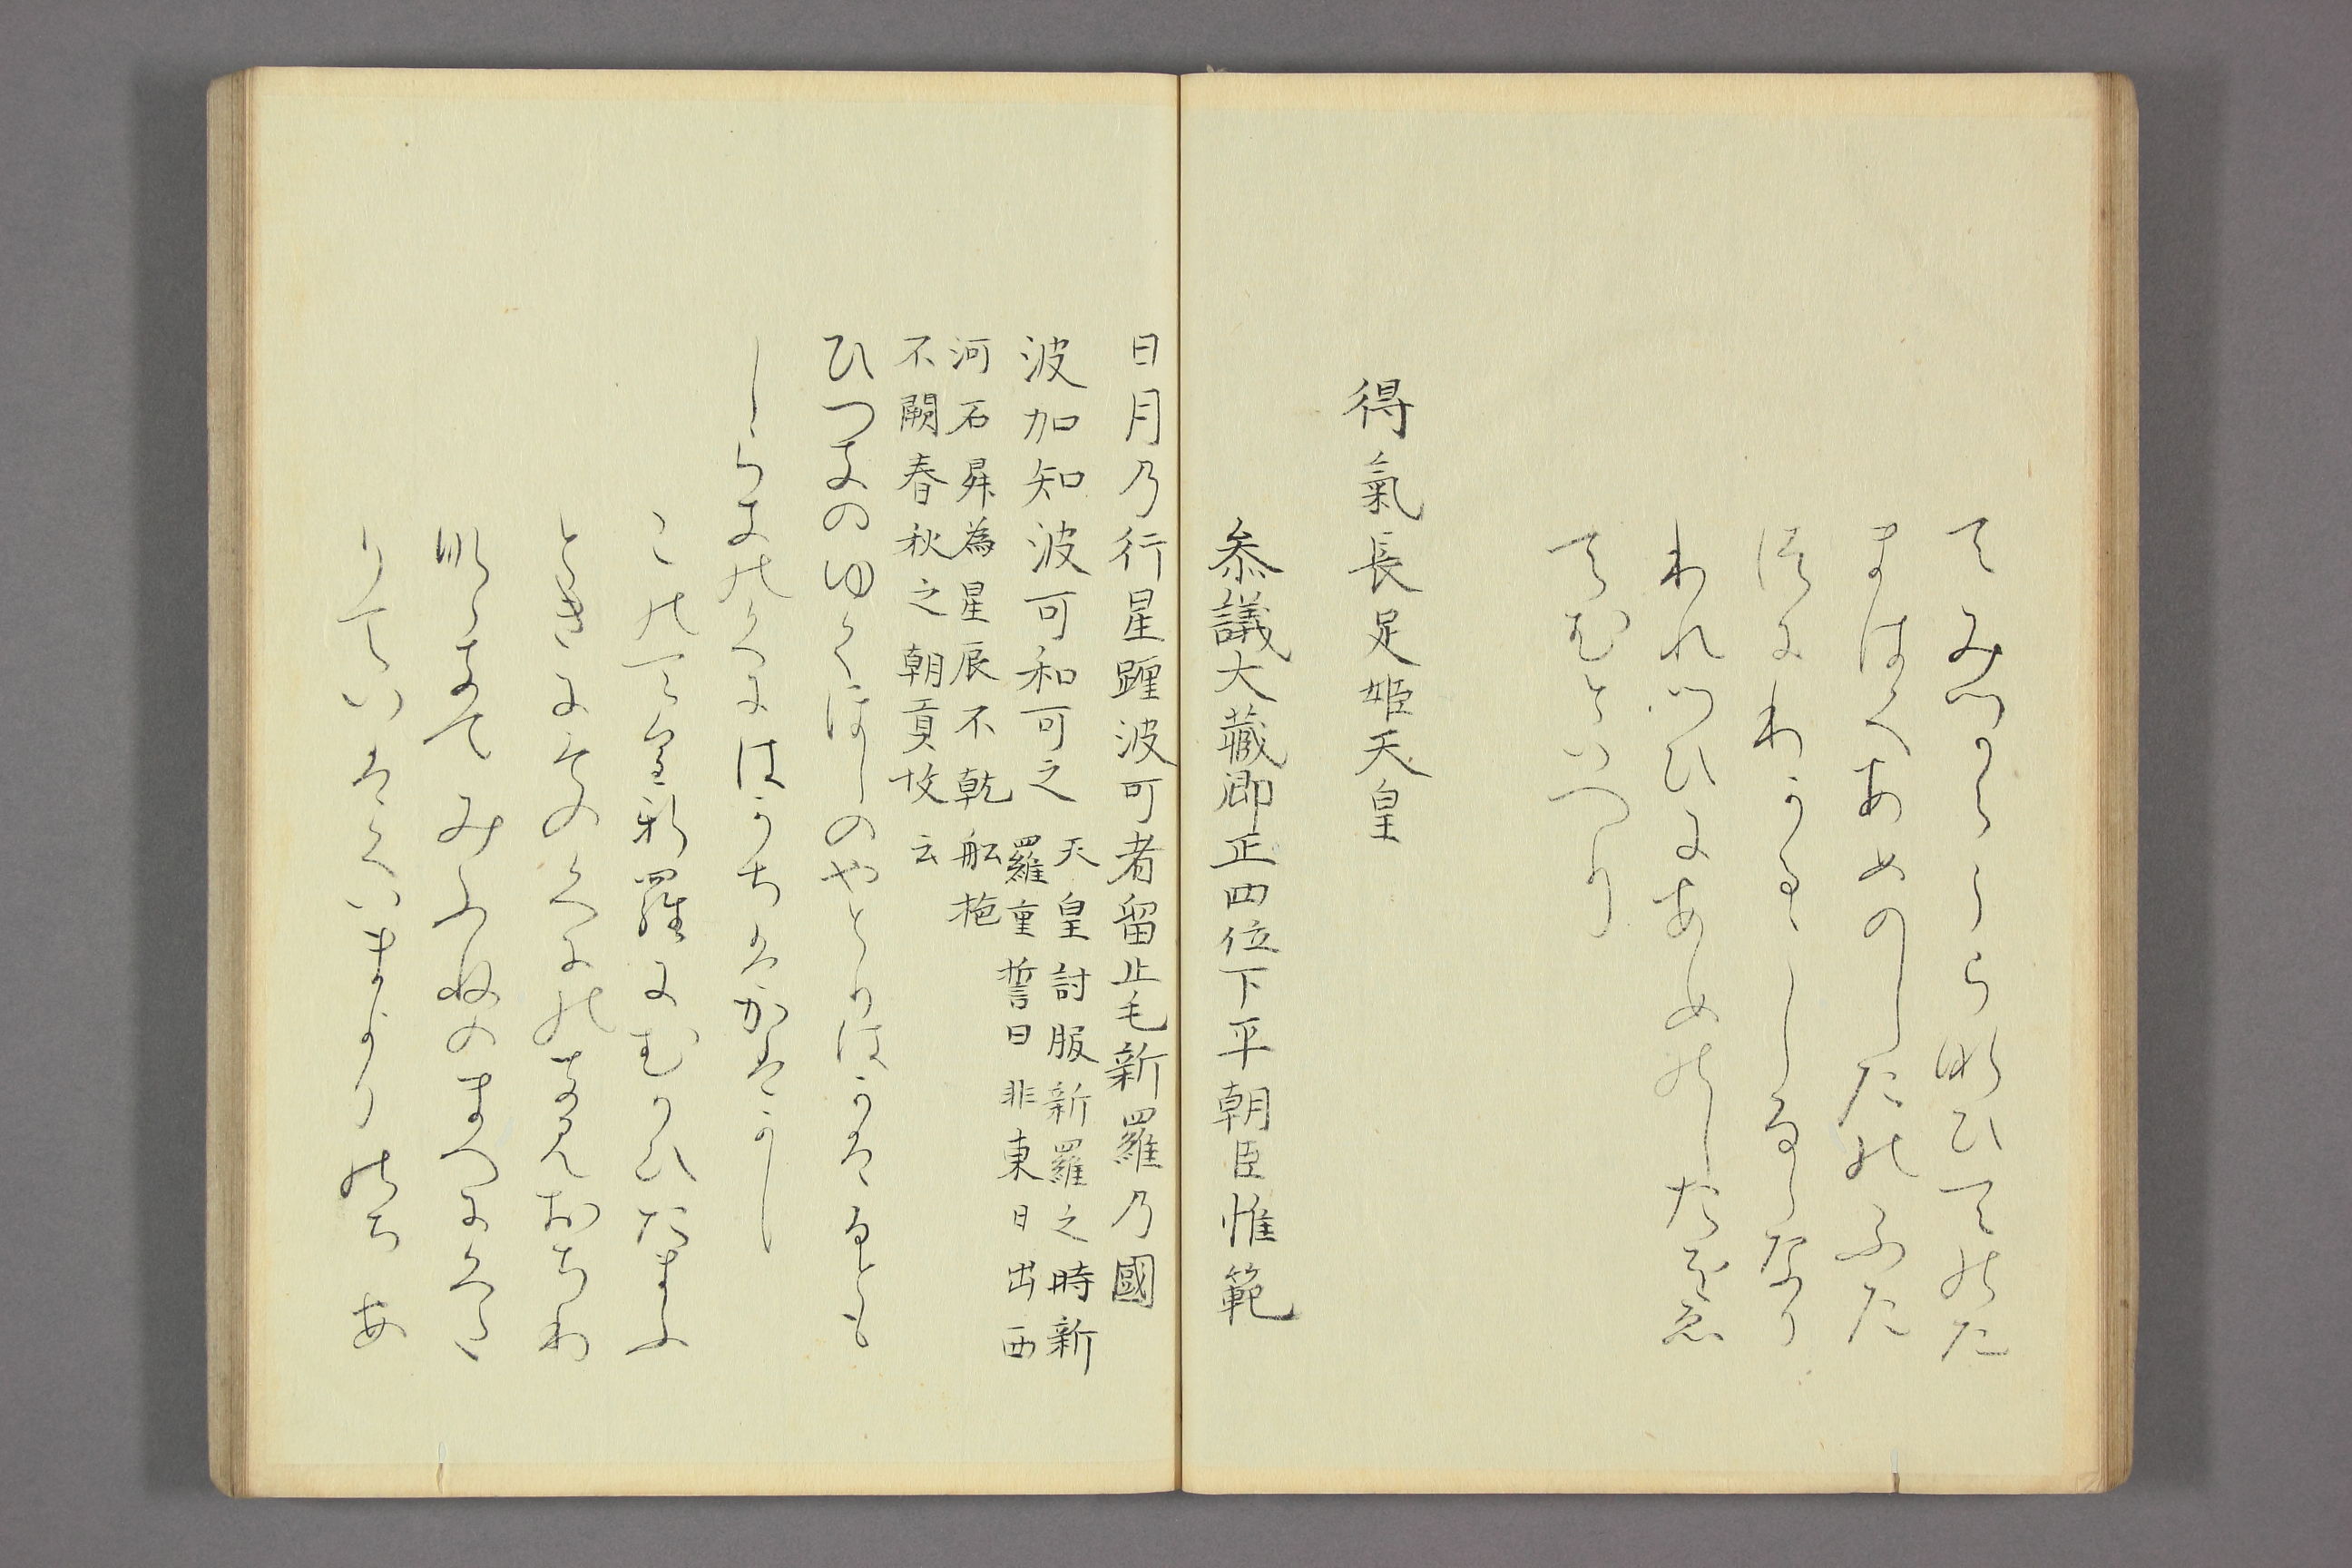 てみつからうらなひてのた
まはくあめのしたのふた
つにわかるゝしるしなり
われつひにあめのしたをえ
てむといへり
得氣長足姫天皇
叅議大藏卿正四位下平朝臣惟範
日月乃行星躔波可者留止毛新羅乃國
波加知波可和可之
天皇討服新羅之時新
羅重誓曰非東日出西
河石昇為星辰不乾舩柂
不闕春秋之朝貢故云
ひつきのゆくほしのやとりはかはるとも
しらきのくにはかちはかはかし
この天皇新羅にむかひたまふ
ときにそのくにのきみおちわ
なゝきてみふねのまへにくた
りていはくいまよりのちあ